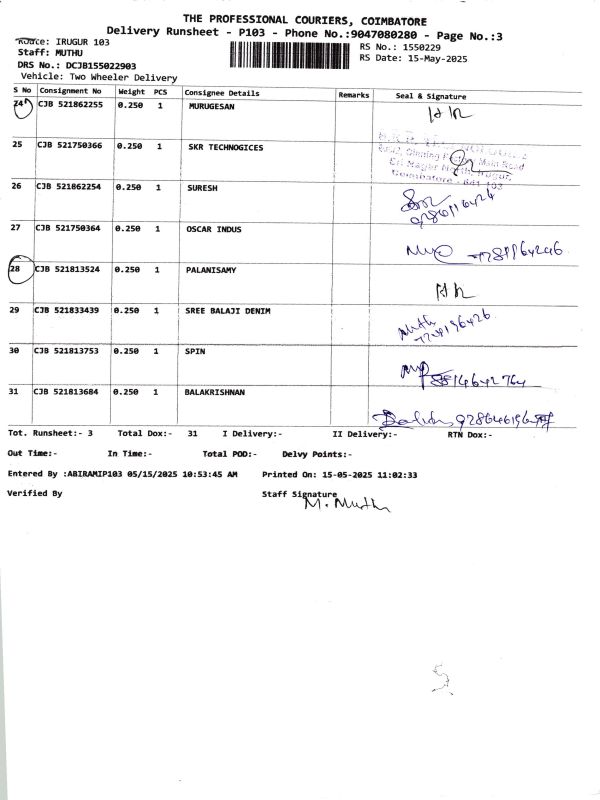 THE PROFESSIONAL COURIERS, COIMBATORE
Delivery Runsheet - P103 - Phone No.:9047080280 - Page No.:3
Route: IRUGUR 103
RS No.: 1550229
Staff: MUTHU
RS Date: 15-May-2025
DRS No.: DCJB155022903
Vehicle: Two Wheeler Delivery
S No Consignment No Weight PCS Consignee Details Remarks Seal & Signature
24 CJB 521862255 0.250 1 MURUGESAN
25 CJB 521750366 0.250 1 SKR TECHNOGICES
Main Road
Coimbatore - 641 103
26 CJB 521862254 0.250 1 SURESH
27 CJB 521750364 0.250 1 OSCAR INDUS
28 CJB 521813524 0.250 1 PALANISAMY
29 CJB 521833439 0.250 1 SREE BALAJI DENIM
Muth
30 CJB 521813753 0.250 1 SPIN
8814642764
31 CJB 521813684 0.250 1 BALAKRISHNAN
Tot. Runsheet:- 3 Total Dox:- 31 I Delivery:- II Delivery:- RTN Dox:-
Out Time:- In Time:- Total POD:- Delvy Points:-
Entered By :ABIRAMIP103 05/15/2025 10:53:45 AM Printed On: 15-05-2025 11:02:33
Verified By Staff Signature
M. Muth